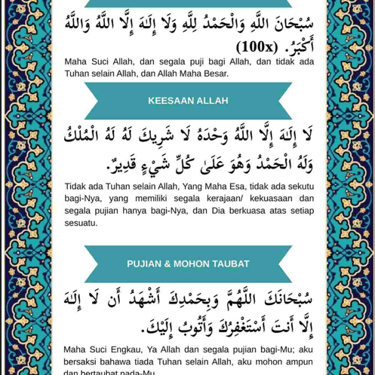 سُبْحَانَ اللَّهِ وَالْحَمْدُ لِلَّهِ وَلَا إِلَـٰهَ إِلَّا اللَّهُ وَاللَّهُ
أَكْبَرُ. (100x)
Maha Suci Allah, dan segala puji bagi Allah, dan tidak ada
Tuhan selain Allah, dan Allah Maha Besar.
KEESAAN ALLAH
لَا إِلَـٰهَ إِلَّا اللَّهُ وَحْدَهُ لَا شَرِيكَ لَهُ لَهُ الْمُلْكُ
وَلَهُ الْحَمْدُ وَهُوَ عَلَىٰ كُلِّ شَيْءٍ قَدِيرٌ.
Tidak ada Tuhan selain Allah, Yang Maha Esa, tidak ada sekutu
bagi-Nya, yang memiliki segala kerajaan/ kekuasaan dan
segala pujian hanya bagi-Nya, dan Dia berkuasa atas setiap
sesuatu.
PUJIAN & MOHON TAUBAT
سُبْحَانَكَ اللَّهُمَّ وَبِحَمْدِكَ أَشْهَدُ أَن لَا إِلَـٰهَ
إِلَّا أَنتَ أَسْتَغْفِرُكَ وَأَتُوبُ إِلَيْكَ.
Maha Suci Engkau, Ya Allah dan segala pujian bagi-Mu; aku
bersaksi bahawa tiada Tuhan selain Allah, aku mohon ampun
dan bertaubat pada-Mu